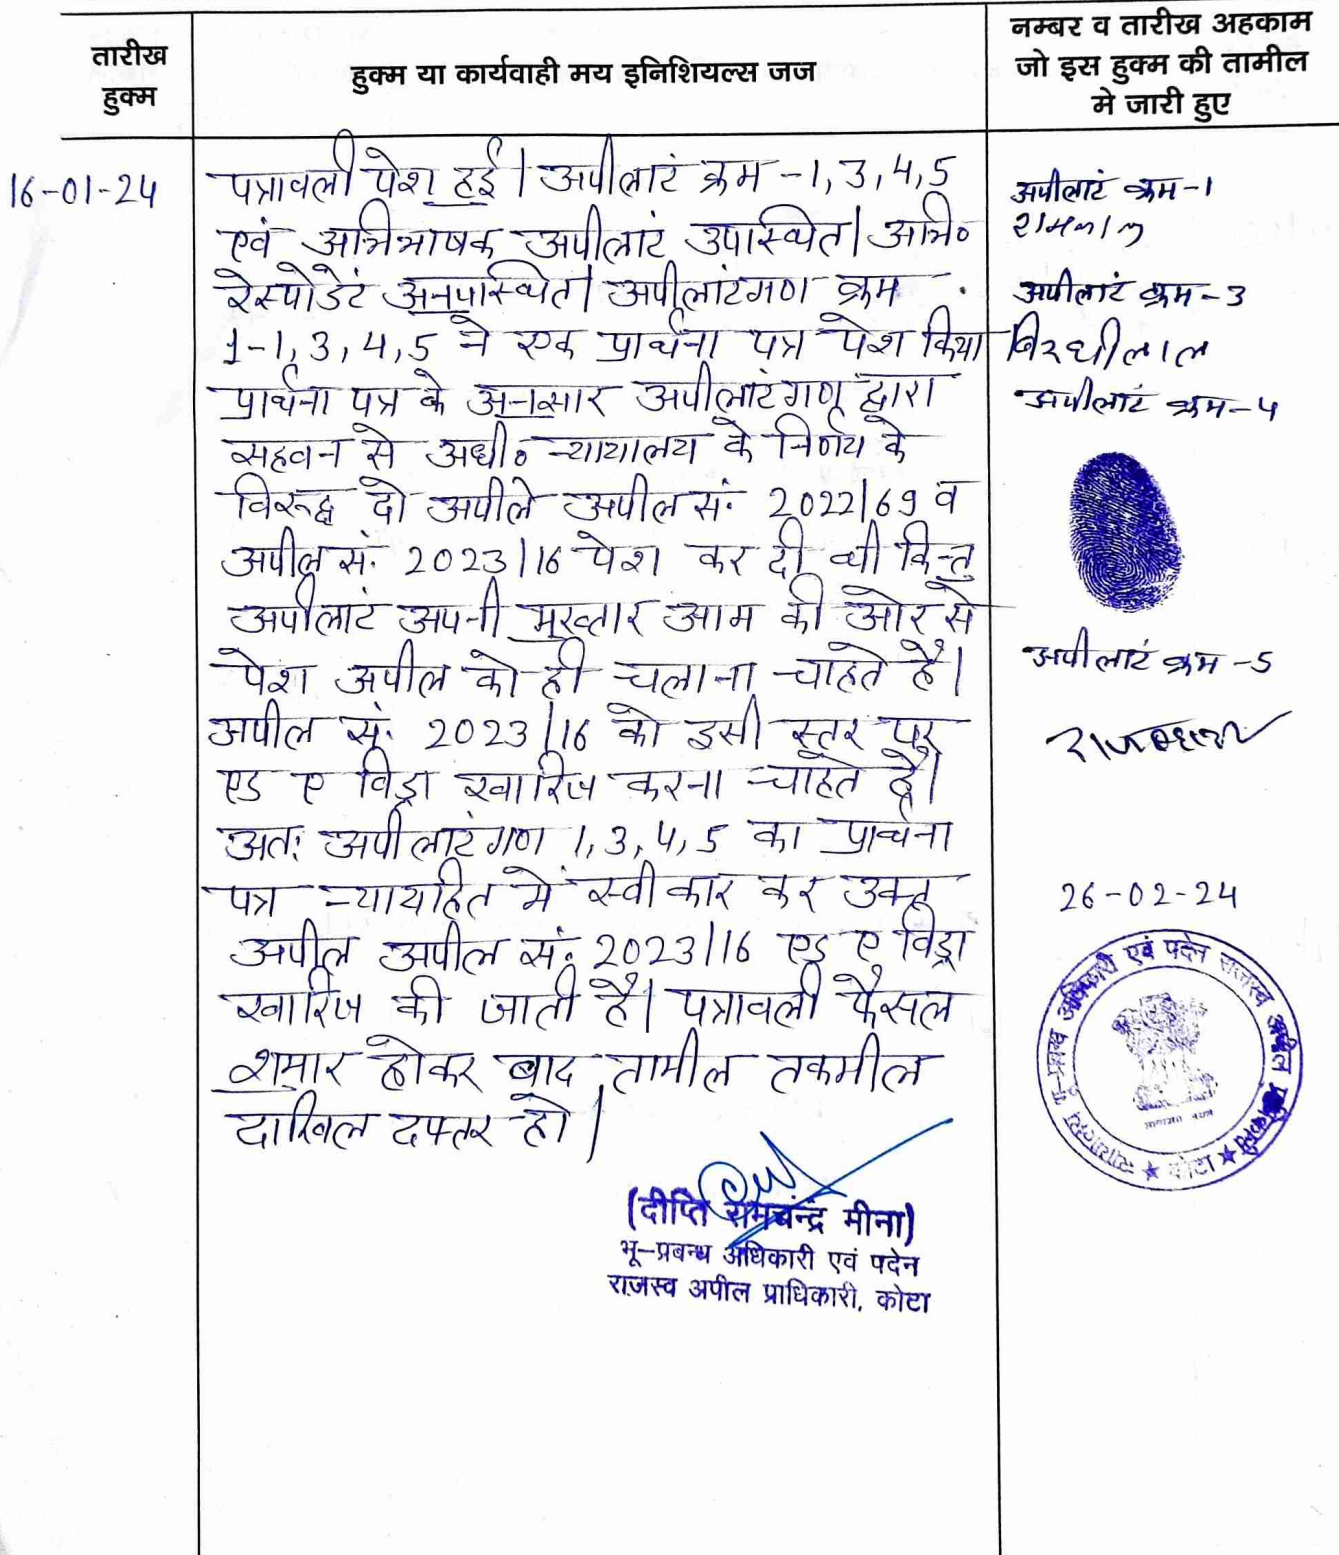 तारीख
हुक्म
हुक्म या कार्यवाही मय इनिशियल्स जज
नम्बर व तारीख अहकाम
जो इस हुक्म की तामील
मे जारी हुए
16-01-24
पत्रावली पेश हुई। अपीलांट क्रम -1, 3, 4, 5
एवं अभिभाषक अपीलांट उपास्थित। अभि०
रेस्पोडेंट अनुपास्थित। अपीलांटगण क्रम
1-1, 3, 4, 5 ने एक प्रार्थना पत्र पेश किया
प्रार्थना पत्र के अनुसार अपीलांटगण द्वारा
सहवन से अधी० न्यायालय के निर्णय के
विरूद्ध दो अपीले अपील सं. 2022/69 व
अपील सं. 2023/16 पेश कर दी थी किन्तु
अपीलांट अपनी मुख्तार आम की ओर से
पेश अपील को ही चलाना चाहते है।
अपील सं. 2023/16 को इसी स्तर पर
एड ए विड्रा खारिज करना चाहते है।
अतः अपीलांटगण 1, 3, 4, 5 का प्रार्थना
पत्र न्यायहित मे स्वीकार कर उक्त
अपील अपील सं. 2023/16 एड ए विड्रा
खारिज की जाती है। पत्रावली फैसल
शुमार होकर बाद तामील तकमील
दाखिल दफ्तर हो।
(दीप्ति रामचंन्द्र मीना)
भू-प्रबन्ध अधिकारी एवं पदेन
राजस्व अपील प्राधिकारी, कोटा
अपीलांट क्रम-1
रामलाल
अपीलांट क्रम-3
बिरधीलाल
अपीलांट क्रम-4
अपीलांट क्रम-5
26-02-24
न्यायालय भू-प्रबन्ध अधिकारी एवं पदेन राजस्व अपील प्राधिकारी
★ कोटा ★